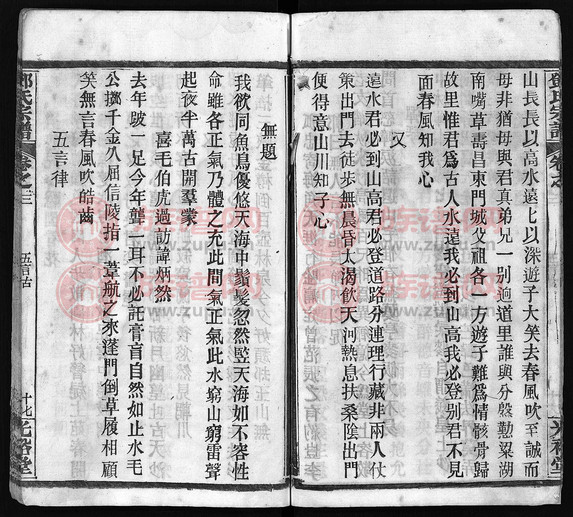 鄧氏宗譜
卷之
光裕堂
山長長以高水遠七以深遊子大笑去春風吹至誠而
毋非猶毋與君真弟兄一別逈道里誰與分慇懃粟湖
南嘴草壽昌東門城父祖各一方遊子難為情骸骨歸
故里惟君為古人水遠我必到山高我必登別君不見
面春風知我心
又
遠水君必到山高君必登道路分連理行藏非兩人仗
策出門去徒步無晨昏太渴飲天河熱息扶桑陰出門
便得意山川知子心
無題
我欲同魚鳥優悠天海中鬚髮忽然竪天海如不容性
命雖各正氣乃體之充此間氣正氣此水窮山窮雷聲
起夜半萬古開羣蒙
喜毛伯虎過訪諱炳然
去年跛一足今年聾一耳不必託膏盲自然如止水毛
公擲千金八屈信陵指一葦航之來蓬門倒草履相顧
笑無言春風吹皓齒
五言律
鄧氏宗譜
卷之三
五言古
十七
光裕堂